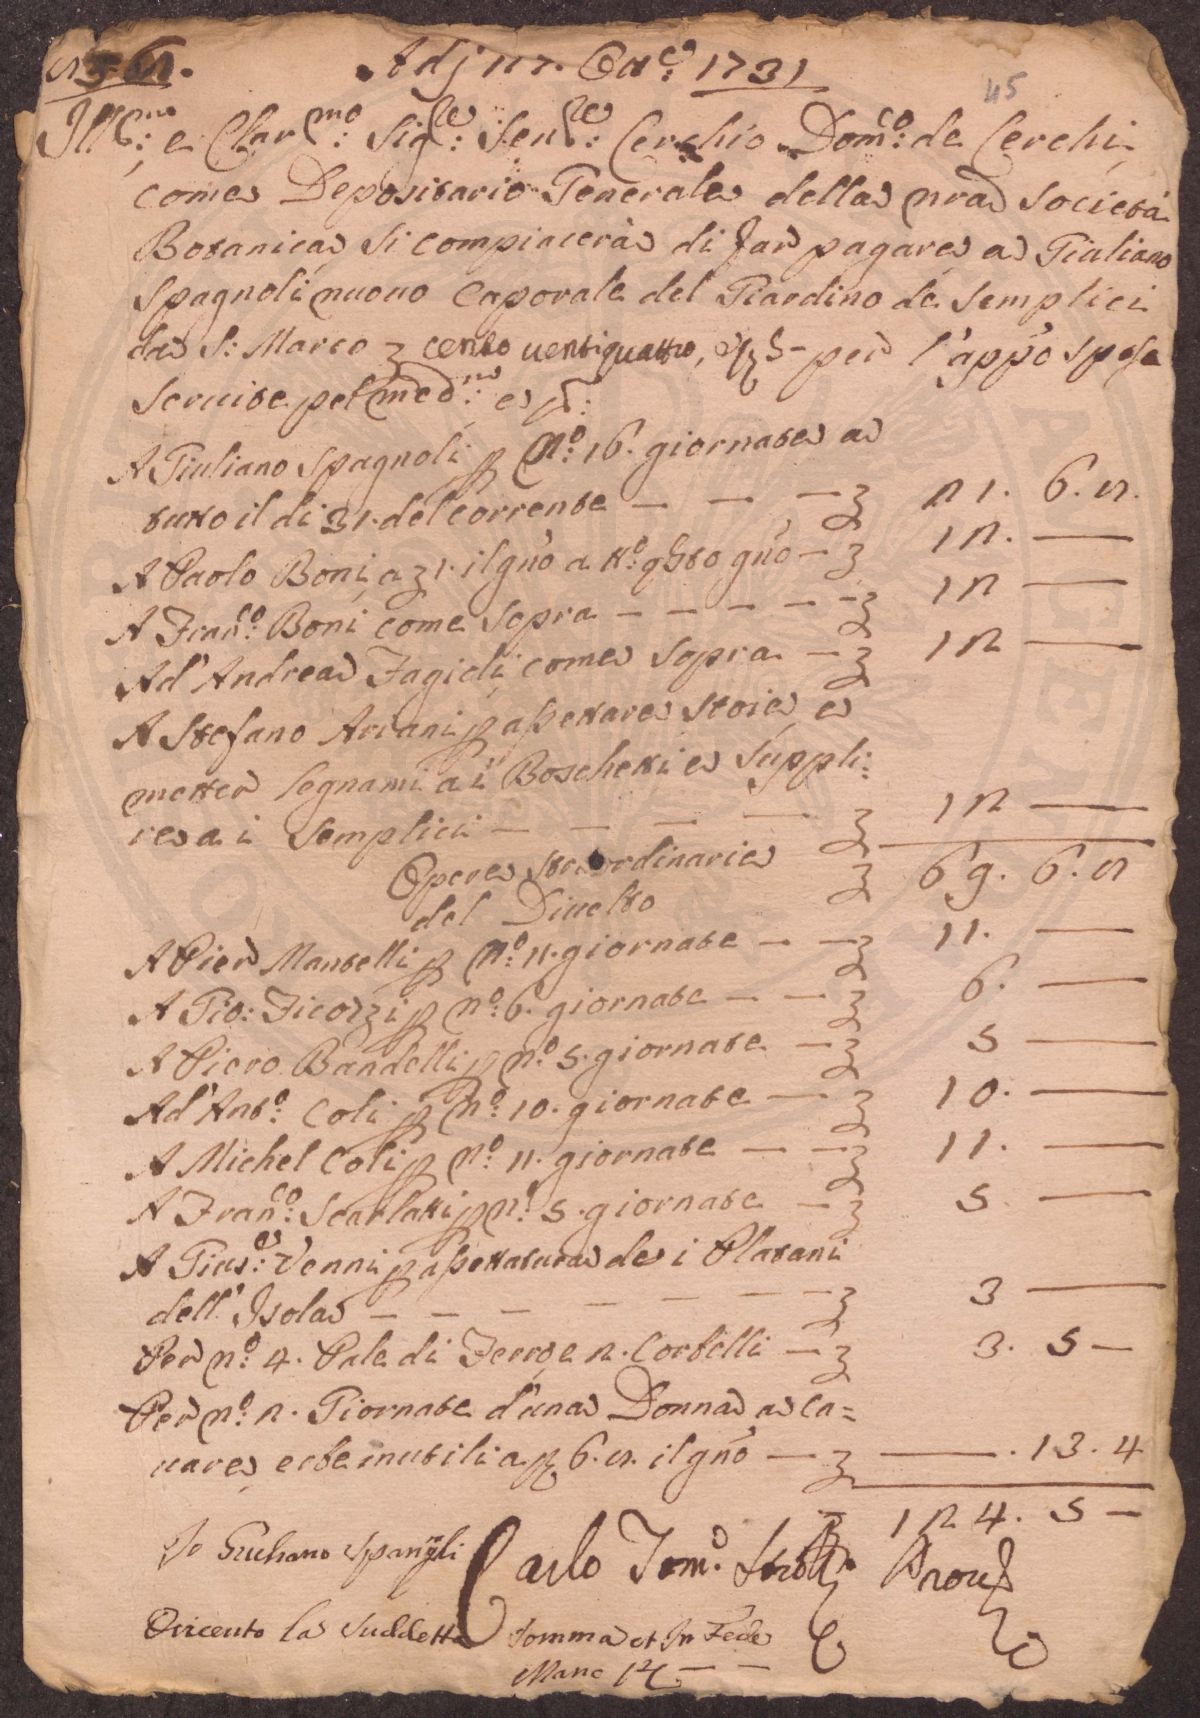 Adj 27. Ott.e 1731
45
Ill.mo e Clar.mo Sig.re Sen.re Cerchio Dom.co de Cerchi
come Depositario Generale della nra Società
Botanica si compiacerà di far pagare a Giuliano
Spagnoli nuovo Caporale del Giardino de Semplici
da S: Marco cento ventiquattro, 5 - per l'app.o spese
servite pel med.mo e p.
A Giuliano Spagnoli p n.o 16. giornate a
tutto il dì 31. del corrente — — — 21. 6. 8.
A Paolo Boni, a 31. il gno a — 12. —
A Fran.co Boni come sopra — — — — — 12 —
Ad' Andrea Fagioli come sopra — 12 —
A Stefano Arcani p assettare stoie e
metter legnami a i Boschetti e suppli:
re a i Semplici — — — — 12 —
69. 6. 8
Opere straordinarie
del Divelto
A Pier Mantelli p n.o 11. giornate — — 11. —
A Gio: Ficozzi p n.o 6. giornate — — 6. —
A Piero Bandelli p n.o 5. giornate — 5 —
Ad' Ant.o Coli p n.o 10. giornate — 10. —
A Michel Coli p n.o 11. giornate — — 11. —
A Fran.co Scarlatti p n.o 5. giornate — 5 —
A Gius.e Venni p assettatura de i Platani
dell' Isola — — — — — — — 3 —
Per n.o 4. Pale di Ferro, e 2. Corbelli — 3. 5 —
Per n.o 2. Giornate d'una Donna, a ca=
vare, erbe inutili a 6. 8. il gno — — . 13. 4
124. 5 —
Io Giuliano Spangnoli
Carlo Tom.o Strozzi Prov.e
la suddetta somma et In Fede
Mano